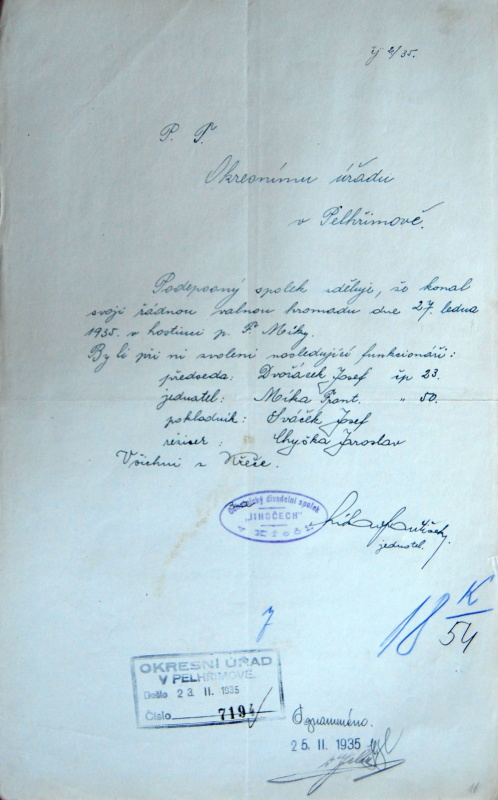 čj 2/35.
P. T.
Okresnímu úřadu
v Pelhřimově.
Podepsaný spolek sděluje, že konal
svoji řádnou valnou hromadu dne 27. ledna
1935. v hostinci p. F. Míky.
Byli při ní zvoleni následující funkcionáři:
předseda: Dvořáček Josef čp 23.
jednatel: Míka Frant. " 50.
pokladník: Sváček Josef
režiser: Chyška Jaroslav
Všichni z Křeče.
za
divadelní spolek
"JIHOČECH"
jednatel.
18 K
54
OKRESNÍ ÚŘAD
V PELHŘIMOVĚ.
Došlo 23 II. 1935
Číslo 7194
Oznámeno.
25. II. 1935